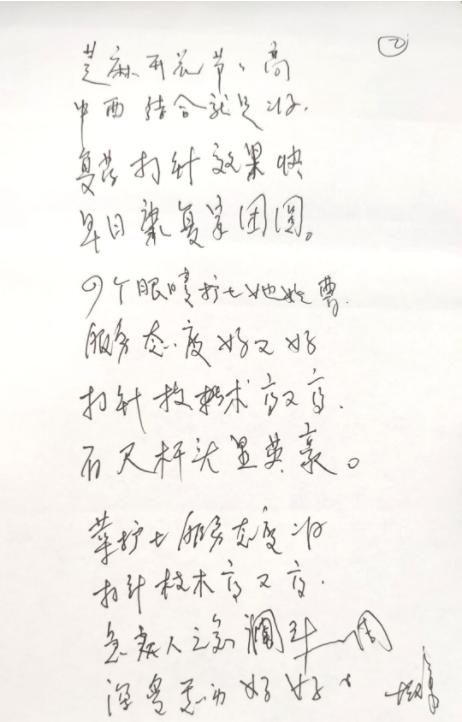 ②
芝麻开花节、高
中西结合就是好.
复苏打针效果快
早日康复家团圆。
四个眼睛护士她姓曹.
服务态度好又好
打针技术高又高.
百尺杆头显英豪。
革护士服务态度好
打针技术高又高.
急患人之急
深受患者好好